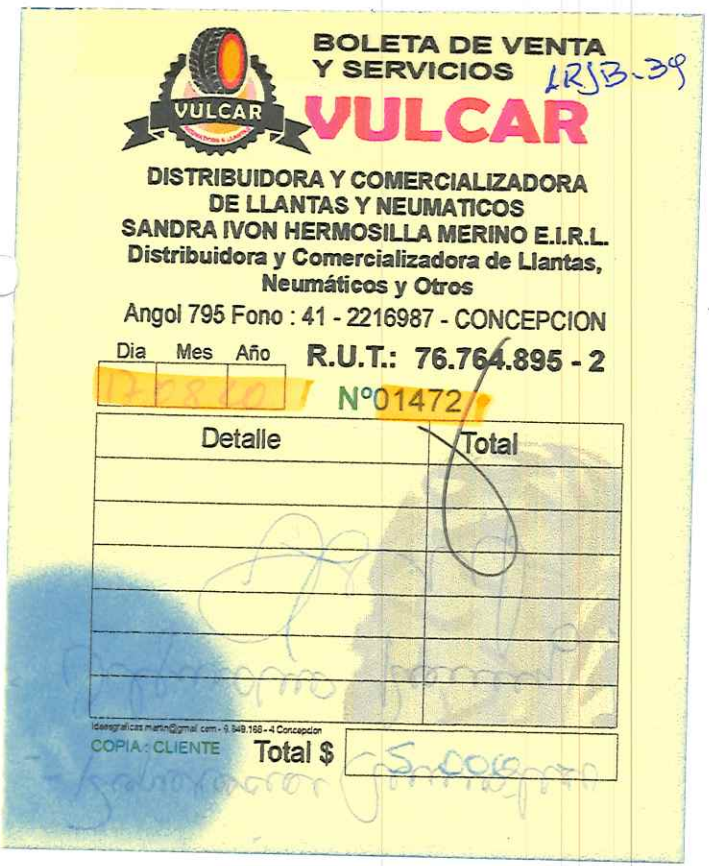 BOLETA DE VENTA
Y SERVICIOS
LRJB-39
VULCAR
VULCAR
DISTRIBUIDORA Y COMERCIALIZADORA
DE LLANTAS Y NEUMATICOS
SANDRA IVON HERMOSILLA MERINO E.I.R.L.
Distribuidora y Comercializadora de Llantas,
Neumáticos y Otros
Angol 795 Fono : 41 - 2216987 - CONCEPCION
Dia Mes Año
R.U.T.: 76.764.895 - 2
17 08 20
Nº01472
Detalle Total
ideasgraficas.martin@gmail.com - 6.949.168 - 4 Concepcion
COPIA : CLIENTE
Total $ 5.000